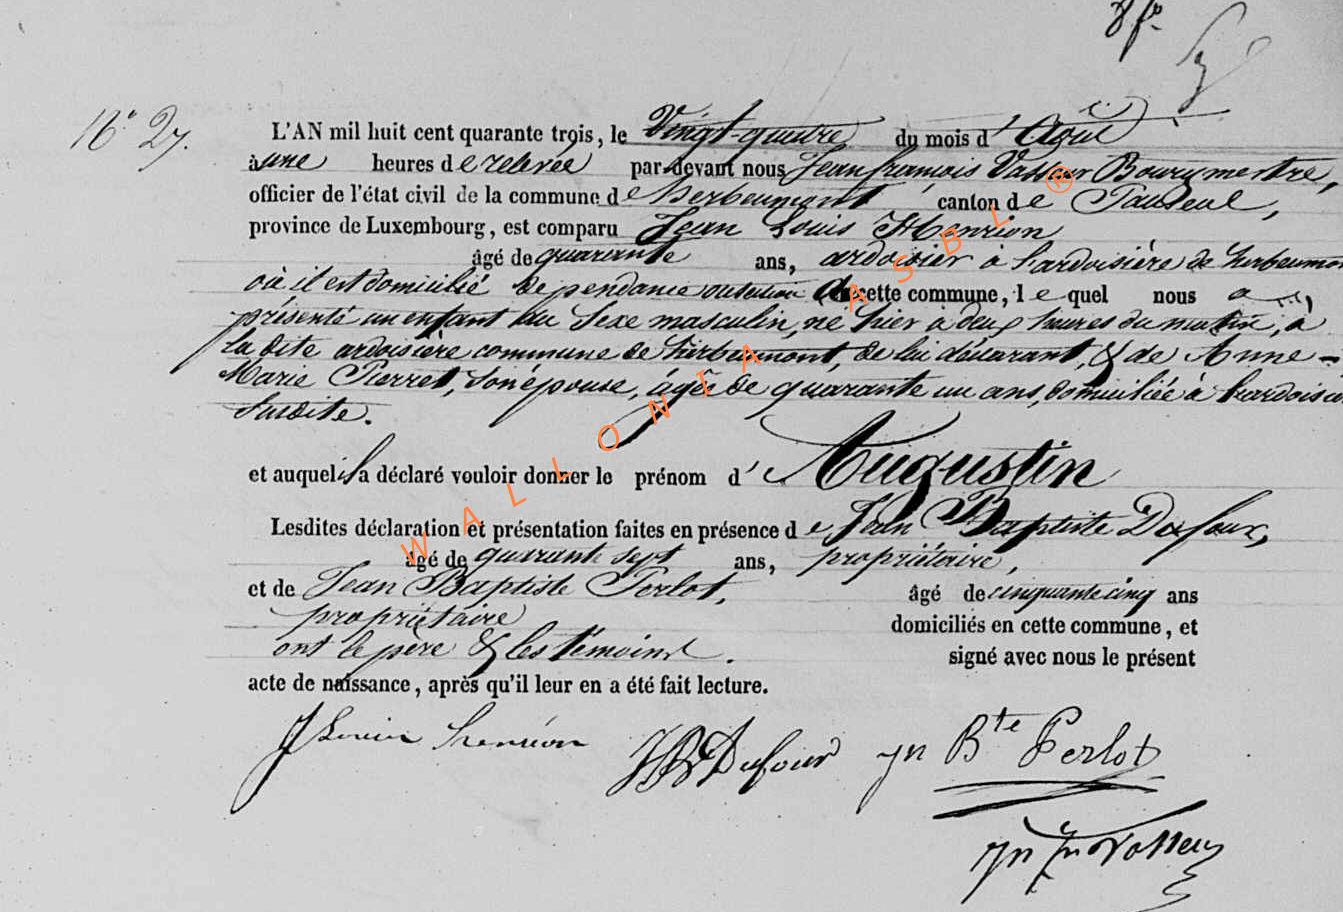 8 fo
No 27.
L'AN mil huit cent quarante trois, le Vingt-quatre du mois d'Août
à une heures de relevée par-devant nous Jean françois Vasseur Bourgmestre,
officier de l'état civil de la commune de herbeumont canton de Paliseul,
province de Luxembourg, est comparu Jean Louis Henrion
âgé de quarante ans, ardoisier à l'ardoisière de herbeumont
où il est domicilié dépendance cette commune, lequel nous a
présenté un enfant du Sexe masculin, né hier à deux heures du matin, à
la dite ardoisière commune de herbeumont, de lui déclarant, & de Anne-
Marie Pierret, Son épouse, âgée de quarante un ans, domiciliée à l'ardoisière
Susdite.
et auquel il a déclaré vouloir donner le prénom d'Augustin
Lesdites déclaration et présentation faites en présence de Jean Baptiste Dufour,
âgé de quarante sept ans, propriétaire,
et de Jean Baptiste Perlot, âgé de cinquante cinq ans
propriétaire domiciliés en cette commune, et
ont le père & les témoins signé avec nous le présent
acte de naissance, après qu'il leur en a été fait lecture.
J Louis henrion JB Dufour jn Bte Perlot
WALLONIA ASBL ®